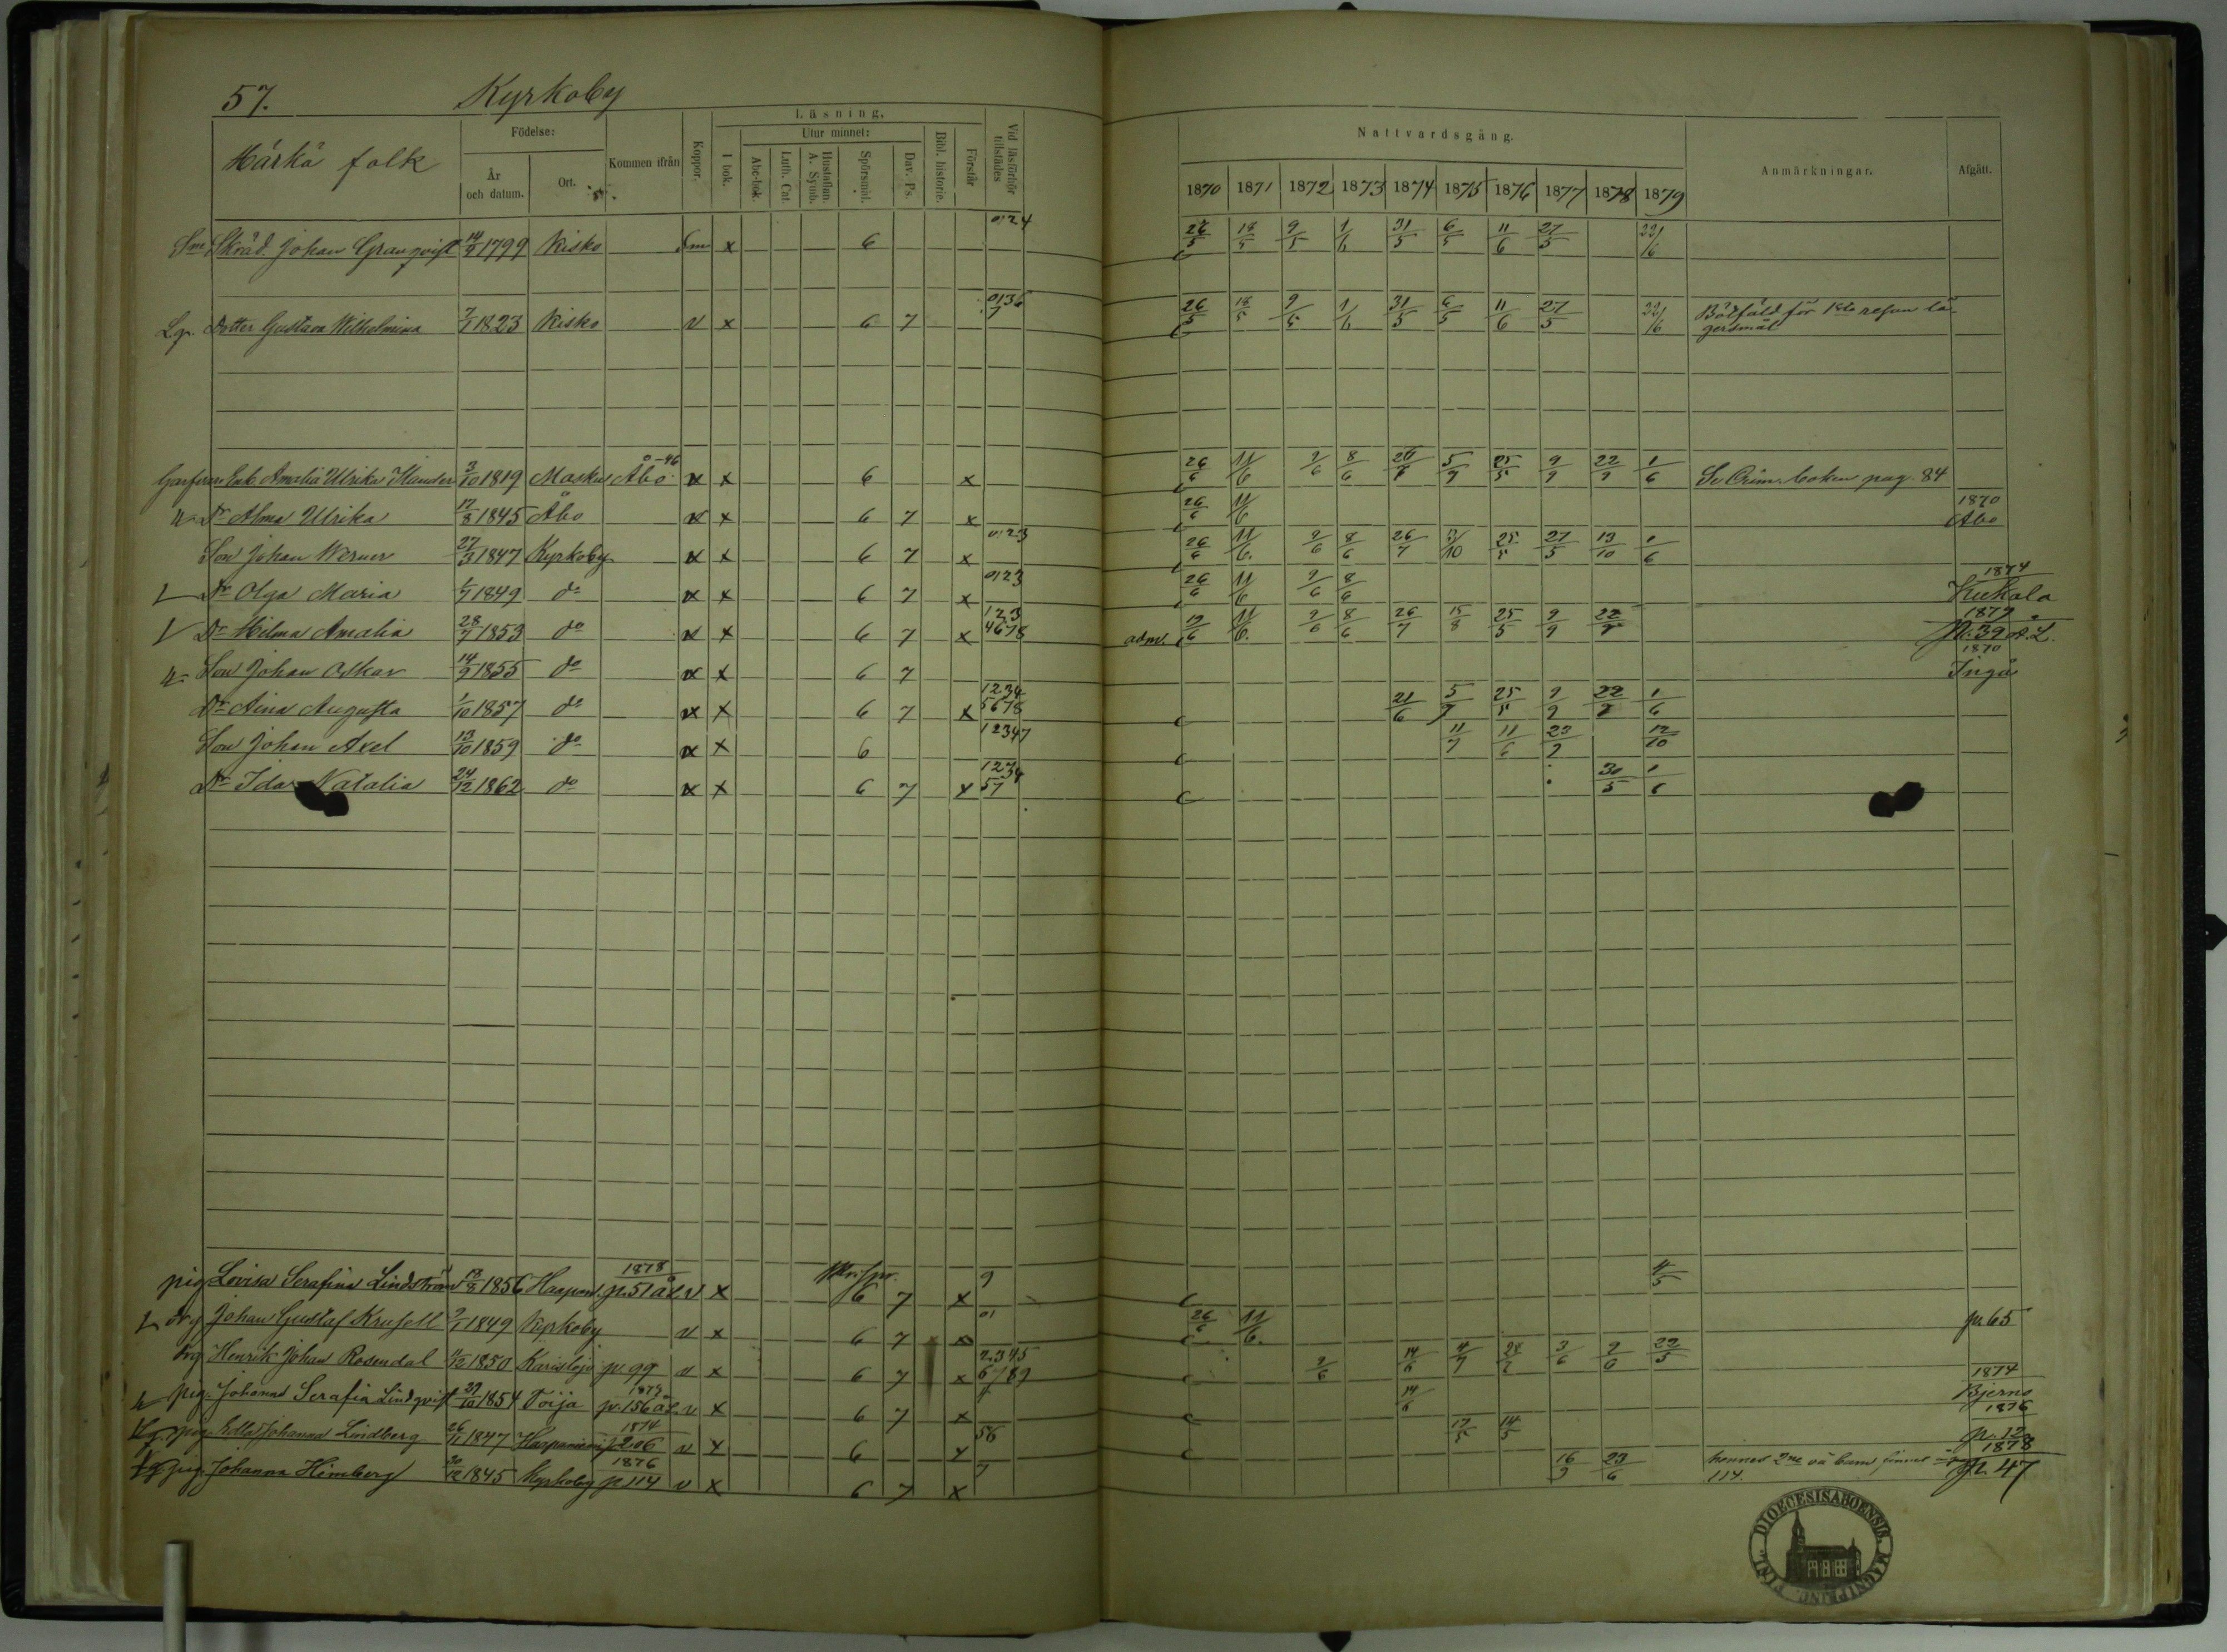 57. Kyrkoby
Härkä folk
Födelse:
År och datum.
Ort.
Kommen ifrån
Koppor.
Läsning.
I bok.
Utur minnet:
Abc-bok.
Luth. Cat.
Hustaflan. A. Symb.
Spörsmål.
Dav. Ps.
Bibl. historie.
Förstår
Vid läsförhör tillstädes
Nattvardsgång.
1870 1871 1872 1873 1874 1875 1876 1877 1878 1879
Anmärkningar.
Afgått.
Skräd. Johan Granqvist 14/9 1799 Kisko x 6 0124 26/5 18/5 9/5 1/6 31/5 6/5 11/6 27/5 22/6
Dotter Gustava Wilhelmina 7/1 1823 Kisko v x 6 7 26/5 18/5 9/5 1/6 31/5 6/5 11/6 27/5 22/6 Bötfäld för 1sta resan lägersmål
Enk. Amalia Ulrika 3/10 1819 Masku Åbo x 6 x 26/6 11/6 9/6 8/6 26/7 5/9 25/5 9/9 22/9 1/6 Se Crim. boken pag. 84
Dr Alma Ulrika 17/8 1845 Åbo x 6 7 x 26/6 11/6 1870 Åbo
Son Johan Werner 27/3 1847 Kyrkoby x 6 7 x 0123 26/6 11/6 9/6 8/6 26/7 3/10 25/5 27/5 13/10 1/6
Dr Olga Maria 1849 do x 6 7 x 0123 26/6 11/6 9/6 8/6 1874
Dr Hilma Amalia 28/7 1853 do x 6 7 x 123 4678 adm. 19/6 11/6 9/6 8/6 26/7 15/8 25/5 9/9 22/9 1879 p. 39
Son Johan Oskar 14/9 1855 do x 6 7 1870 Ingå
Dr Aina Augusta 1/10 1857 do x 6 7 x 1234 5678 21/6 5/9 25/5 9/9 22/9 1/6
Son Johan Axel 13/10 1859 do x 6 12347 11/7 11/6 23/9 12/10
Dr Ida Natalia 24/12 1862 do x 6 7 x 1234 57 30/5 1/6
pig Lovisa Serafina Lindström 18/8 1856 Haapan. 1878 p. 51 v x 6 7 x 9 4/5
drg Johan Gustaf Krusell 1849 Kyrkoby v x 6 7 01 26/6 11/6 p. 65
drg Henrik Johan Rosendal 1850 Karislojo p. 99 v x 6 7 x 2345 6789 9/6 14/6 4/9 3/6 22/5
pig. Johanna Serafia Lindqvist 1854 Toija p. 156 v x 6 7 x 14/6 1874 Bjerno
pig. Edla Johanna Lindberg 26/11 1847 Haapaniemi 1874 p. 206 v x 6 x 56 17/5 14/5 1876
pig. Johanna Himberg 1845 Kyrkoby 1876 p. 114 v x 6 7 x 7 16/9 23/6 hennes 2ne oä barn finnes 114. 1878 p. 47
DIOECESIS ABOENSIS